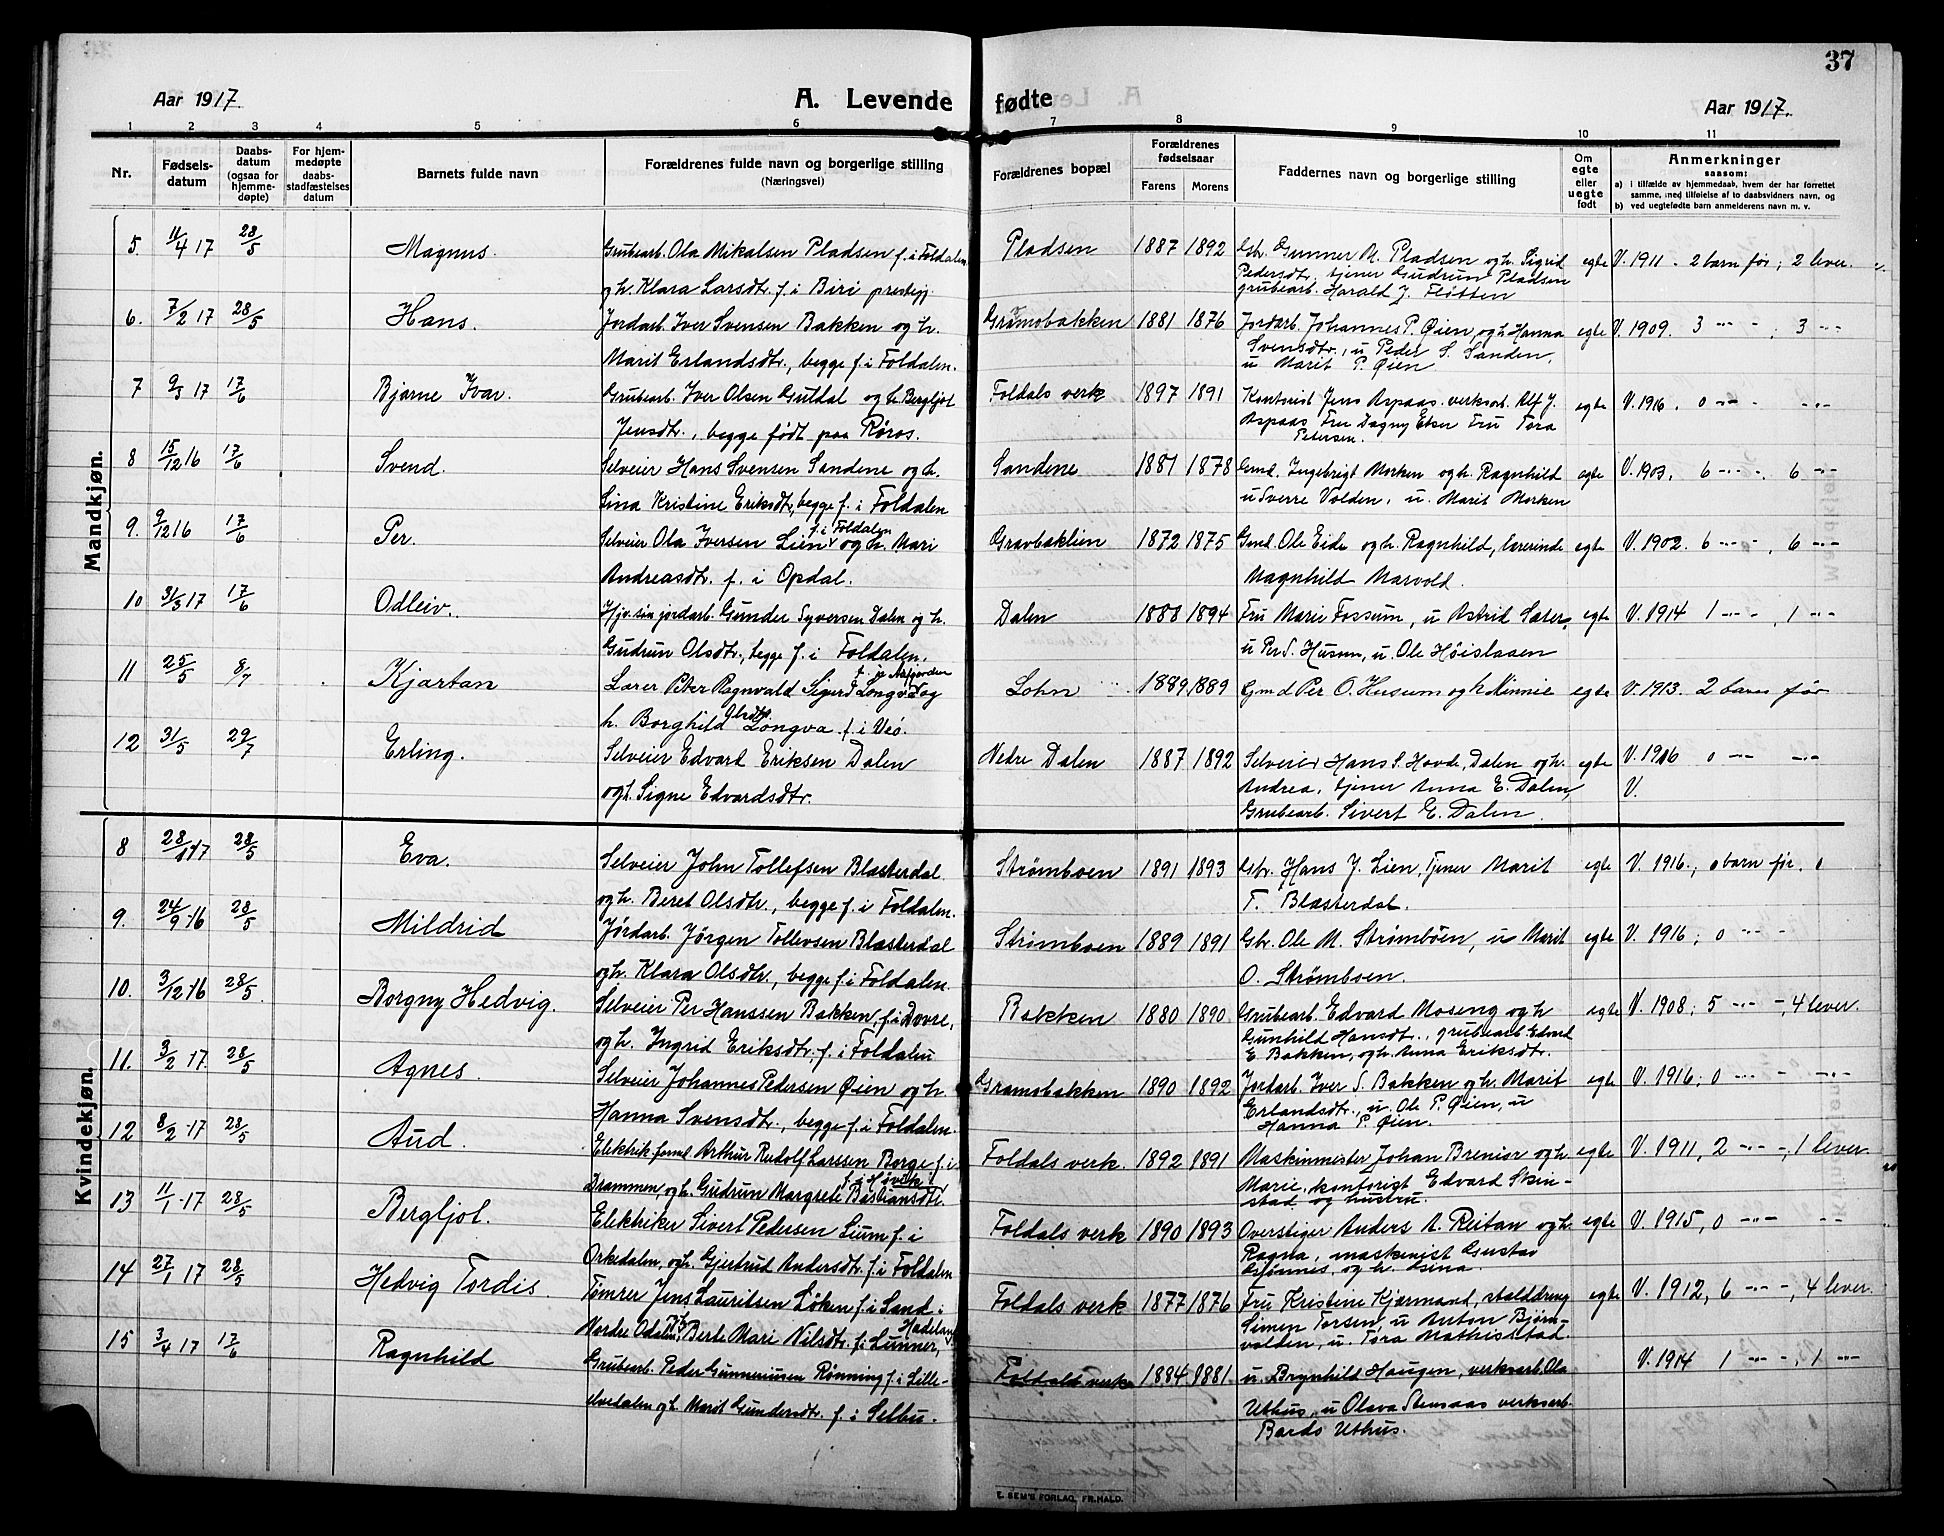 37
Aar 1917.
A. Levende fødte
Aar 1917.
1 2 3 4 5 6 7 8 9 10 11
Nr.
Fødsels-
datum
Daabs-
datum
(ogsaa for
hjemme-
døpte)
For hjem-
medøpte
daabs-
stadfæstelses
datum
Barnets fulde navn
Forældrenes fulde navn og borgerlige stilling
(Næringsvei)
Forældrenes bopæl
Forældrenes
fødselsaar
Farens Morens
Faddernes navn og borgerlige stilling
Om
egte
eller
uegte
født
Anmerkninger
saasom:
a) i tilfælde av hjemmedaab, hvem der har forrettet
samme, med tilføielse af to daabsvidners navn, og
b) ved uegtefødte barn anmelderens navn m. v.
Mandkjøn.
5. 11/4 17 28/5 Magnus. Grubearb. Ola Mikalsen Pladsen f. i Foldalen Pladsen 1887 1892 Gbr. Gunner M. Pladsen og h. Sigrid egte V. 1911 - 2 barn før; 2 lever.
og h. Klara Larsdtr. f. i Biri prestegj Pedersdt., tjener Gudrun Pladsen
grubearb. Harald J. Fløtten
6. 7/2 17 28/5 Hans. Jordarb. Iver Svensen Bakken og h. Gramobakken 1881 1876 Jordarb. Johannes P. Øien, og h. Hanna egte V. 1909. 3 -"- - , 3 -"-
Marit Erlandsdtr., begge f. i Foldalen. Svensdtr., u Peder S. Sanden,
u Marit P. Øien
7 9/3 17 17/6 Bjarne Ivar. Grubearb. Iver Olsen Guldal og h. Bergljot Foldals verk 1897 1891 Kontorist Jens Aspaas. verksarb. Alf J. egte V. 1916. 0 -"- - -"-
Jensdtr., begge født paa Røros. Aspaas Fru Dagny Fru Tora
Petersen.
8 15/12 16 17/6 Svend. Selveier Hans Svensen Sandene og h. Sandene 1881 1878 Gmd. Ingebrigt Morken og h. Ragnhild egte V. 1903. 6 -"- - 6 -"-
Sina Kristine Eriksdtr., begge f. i Foldalen u Sverre Volden, u. Marit Morken
9. 9/12 16 17/6 Per. Selveier Ola Iversen Lien f. i Foldalen og h. Mari Gravbaklien 1872 1875 Gmd. Ole Eide og h. Ragnhild, lærerinde egte V. 1902. 6 -"- , 6 -"-
Andreasdtr. f. i Opdal. Magnhild Marvold.
10 31/3 17 17/6 Odleiv. jordarb. Gunder Syversen Dalen og h. Dalen 1888 1894 Fru Marie Fossum, u Astrid Sæter, egte V. 1914 1 -"- - , 1 -"-
Gudrun Olsdtr., begge f. i Foldalen. u Per S. Husum, u. Ole Høislaasen
11 25/5 8/7 Kjartan Lærer Peter Ragnvald Sigurd Longva og Lohn 1889 1889 Gmd Per O. Husum og h Minnie egte V. 1913. 2 barn før
h. Borghild Longva f. i Veø.
12 31/5 29/7 Erling. Selveier Edvard Eriksen Dalen Nedre Dalen 1887 1892 Selveier Hans S. Hovde, Dalen og h. egte V. 1916 0 -"- -"-
og h. Signe Edvardsdtr. Andrea, tjener Anna E. Dalen, V.
Grubearb. Sivert E. Dalen.
Kvindekjøn.
8 28/1 17 28/5 Eva. Selveier John Tollefsen Blæsterdal Strømboen 1891 1893 Gbr. Hans J. Lien, Tjener Marit egte V. 1916; 0 barn før. 0
og h. Beret Olsdtr., begge f. i Foldalen. T. Blæsterdal.
9. 24/9 16 28/5 Mildrid Jordarb. Jørgen Tollevsen Blæsterdal Strømboen 1889 1891 Gbr. Ole M. Strømbøen, u Marit egte V. 1916; 0 -"- -
og h. Klara Olsdtr., begge f. i Foldalen. O. Strømboen.
10. 3/12 16 28/5 Borgny Hedvig. Selveier Per Hanssen Bakken, f. i Dovre, Bakken 1880 1890 Grubearb. Edvard Moseng og h egte V. 1908; 5 -"- -, 4 lever.
og h. Ingrid Eriksdtr. f. i Foldalen Gunhild Hansdtr., grubearb. Edvard
E. Bakken, og h. Anna Eriksdtr.
11. 3/2 17. 28/5 Agnes. Selveier Johannes Pedersen Øien og h. Gramobakken 1890 1892 Jordarb. Iver S. Bakken og h. Marit egte V. 1916; 0 -"- - -"-
Hanna Svensdtr., begge f. i Foldalen. Erlandsdtr., u. Ole P. Øien, u
Hanna P. Øien.
12 8/2 17 28/5 Aud. Elektrik. form. Arthur Rudolf Larssen Borge f. i Foldals verk. 1892 1891 Maskinmester Johan Brenior og h egte V. 1911, 2 -"- -, 1 lever.
Drammen og h. Gudrun Margrete Bastiansdtr. Marie, kontorist Edvard Skin-
stad og hustru.
13 11/1 17 28/5 Bergljot. Elektriker Sivert Pedersen Lium f. i Foldals verk 1890 1893 Overstiger Anders A. Reitan og h. egte V. 1915, 0 -"- -"-
Orkedalen, og h. Gjertrud Andersdtr. f. i Foldalen Ragna, maskinist Gustav
og h. Asina.
14 27/1 17 28/5 Hedvig Tordis. Tømrer Jens Lauritsen Løken f. i Sand i Foldals verk 1877 1876 Fru Kristine Kjærmand, stalddreng egte V. 1912, 6 -"- -, 4 lever.
Nordre Odalen, Berte Mari Nilsdtr. f. i Lunner, Hadeland Simen Torsen, u Anton Bjørn-
volden, u. Tora Mathisstad.
15 3/4 17 17/6 Ragnhild Grubearb. Peder Gunneriusen Rønning f. i Lille- Foldals verk 1884 1881 u. Brynhild Haugen, verksarb. Ola V. 1914 1 -"- -, 1 -"-
elvedalen og h. Marit Gundersdtr. f. i Selbu. Uthus, u Olava Stensaas verksarb.
Bardo Uthus.
E. SEM'S FORLAG, FR.HALD.